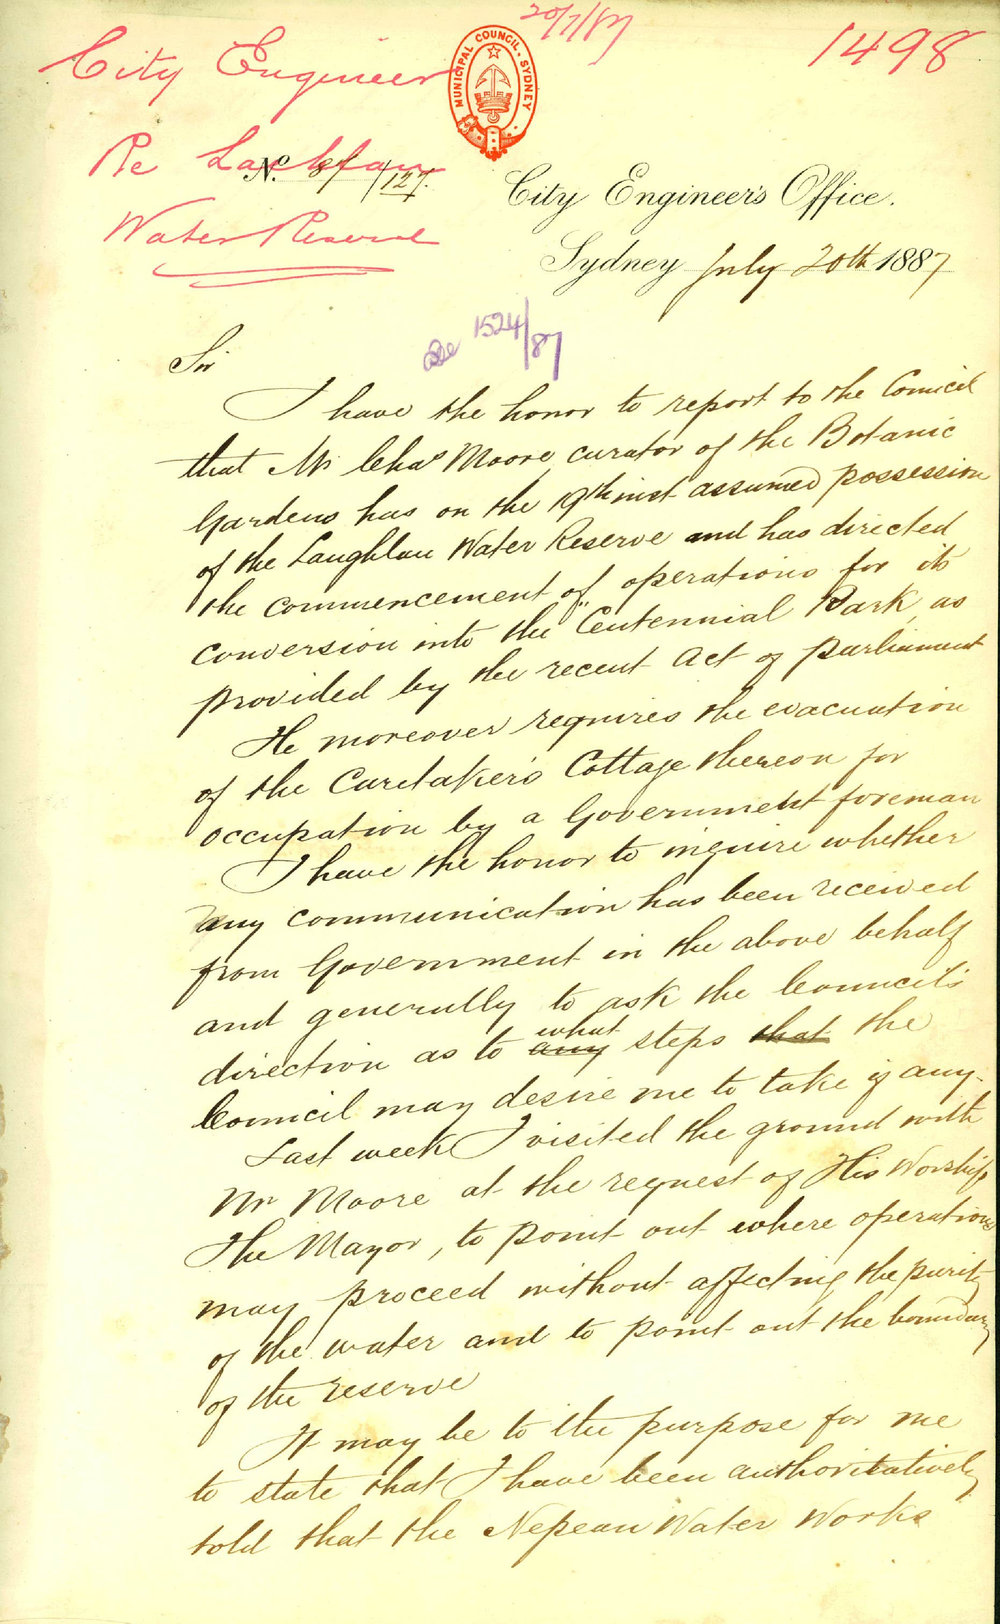 20/7/87
1498
City Engineer
MUNICIPAL COUNCIL. SYDNEY
Re Lachlan
No. 87/127.
Water Reserve
City Engineer's Office.
Sydney July 20th 1887
1524/87
Sir
I have the honor to report to the Council
that Mr Chas Moore, curator of the Botanic
Gardens has on the 19th inst assumed possession
of the Laughlan Water Reserve and has directed
the commencement of operations for its
conversion into the "Centennial Park, as
provided by the recent Act of parliament
He moreover requires the evacuation
of the Caretaker's Cottage thereon for
occupation by a Government foreman
I have the honor to inquire whether
any communication has been received
from Government in the above behalf
and generally to ask the Council's
what
direction as to any steps that the
Council may desire me to take if any.
Last week I visited the ground with
Mr Moore at the request of His Worship
The Mayor, to point out where operations
may proceed without affecting the purity
of the water and to point out the boundary
of the reserve
It may be to the purpose for me
to state that I have been authoritatively
told that the Nepean Water Works